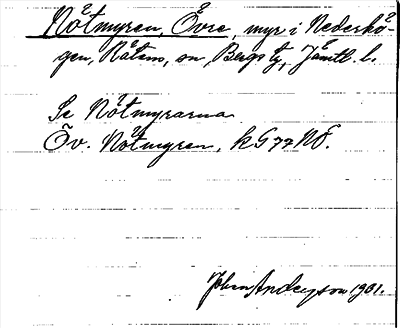 Nötmyren, Övre, myr i Nederhö-
gen, Rätans sn, Bergs tg, Jämtl. l.
Se Nötmyrarna
Öv. Nötmyren, k G 77 NÖ.
John Andersson 1931.